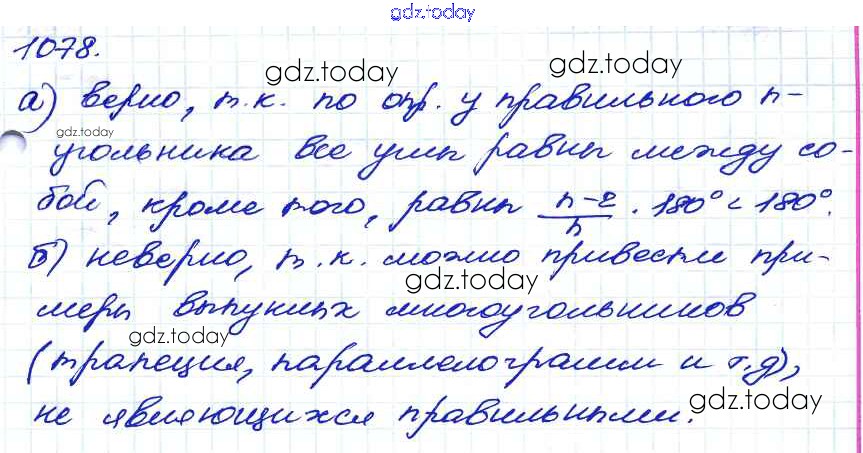 gdz.today
1078.
gdz.today
а) верно, т.к. по опр. у правильного n-
gdz.today
угольника все углы равны между со-
бой, кроме того, равны n-2/n · 180° < 180°.
б) неверно, т.к. можно привести при-
gdz.today
меры выпуклых многоугольников
gdz.today
(трапеция, параллелограмм и т.д),
не являющихся правильными.
gdz.today